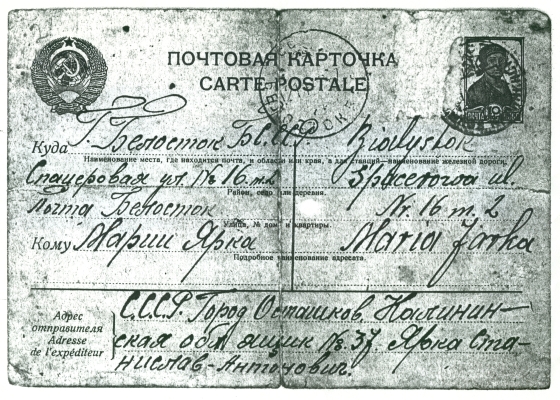 ПОЧТОВАЯ КАРТОЧКА
CARTE POSTALE
Куда Г. Белосток БССР Białystok
Наименование места, где находится почта, и области или края, а для станций—наименование железной дороги.
Спацеровая ул. № 16 т2 Spacerowa ul.
Район, село или деревня.
Почта Белосток Nr. 16 m. 2
Улица, № дома и квартиры.
Кому Марии Ярка Maria Jarka
Подробное наименование адресата.
Адрес отправителя
Adresse de l'expéditeur
С.С.С.Р. Город Осташков, Калинин-
ская обл ящик № 37 Ярка Ста-
нислав-Антонович.